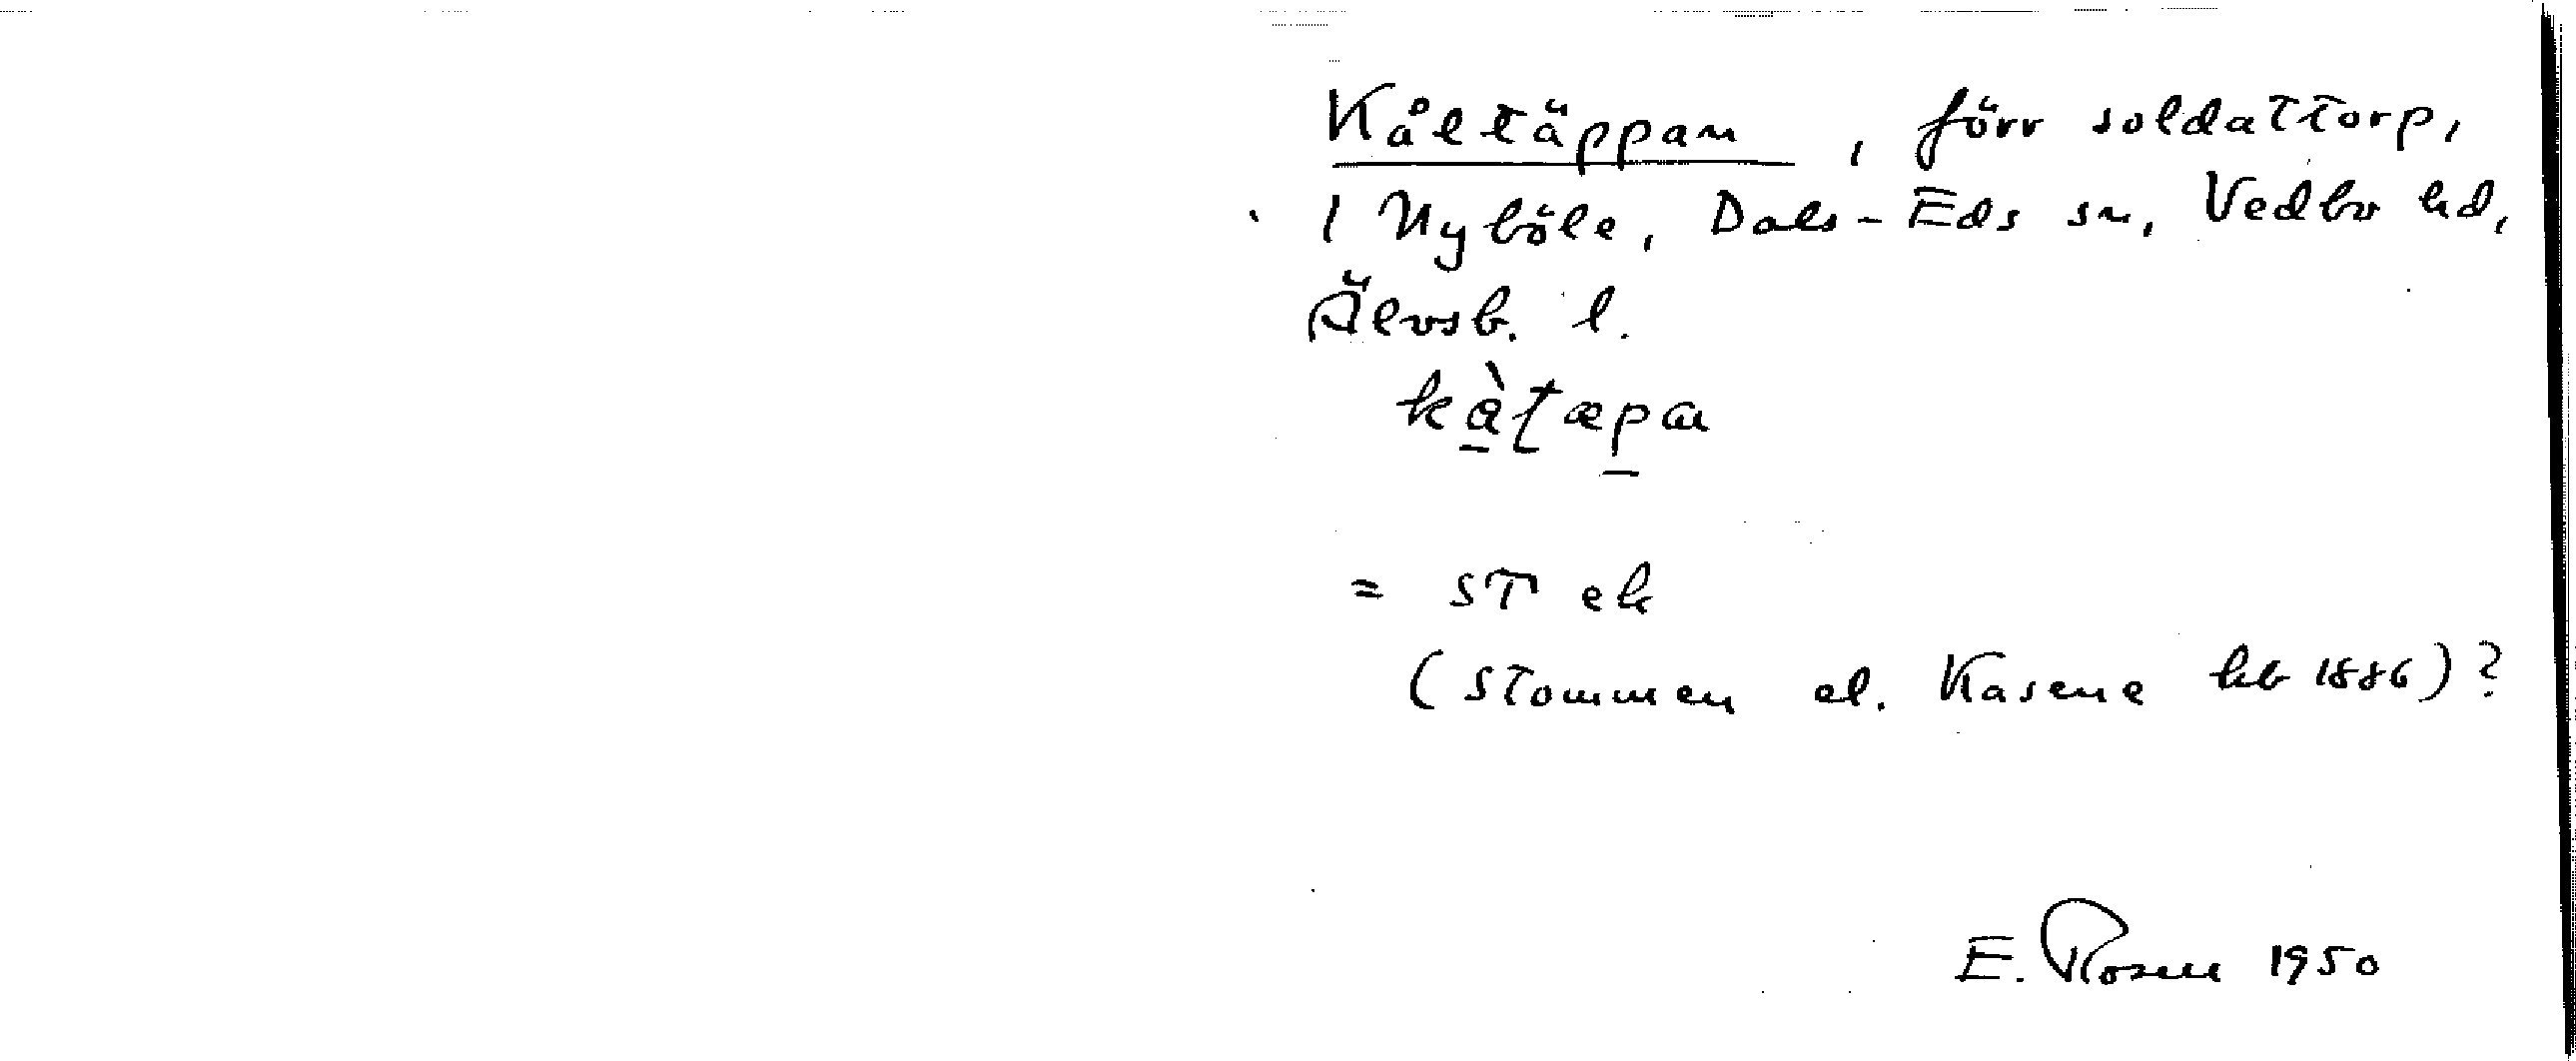 Kåltäppan, förr soldattorp,
1 Nyböle, Dals-Eds sn, Vedbo hd,
Älvsb. l.
kàƫæpa
= ST ek
(Stommen el. Kasene kb 1886)?
E. Rosen 1950